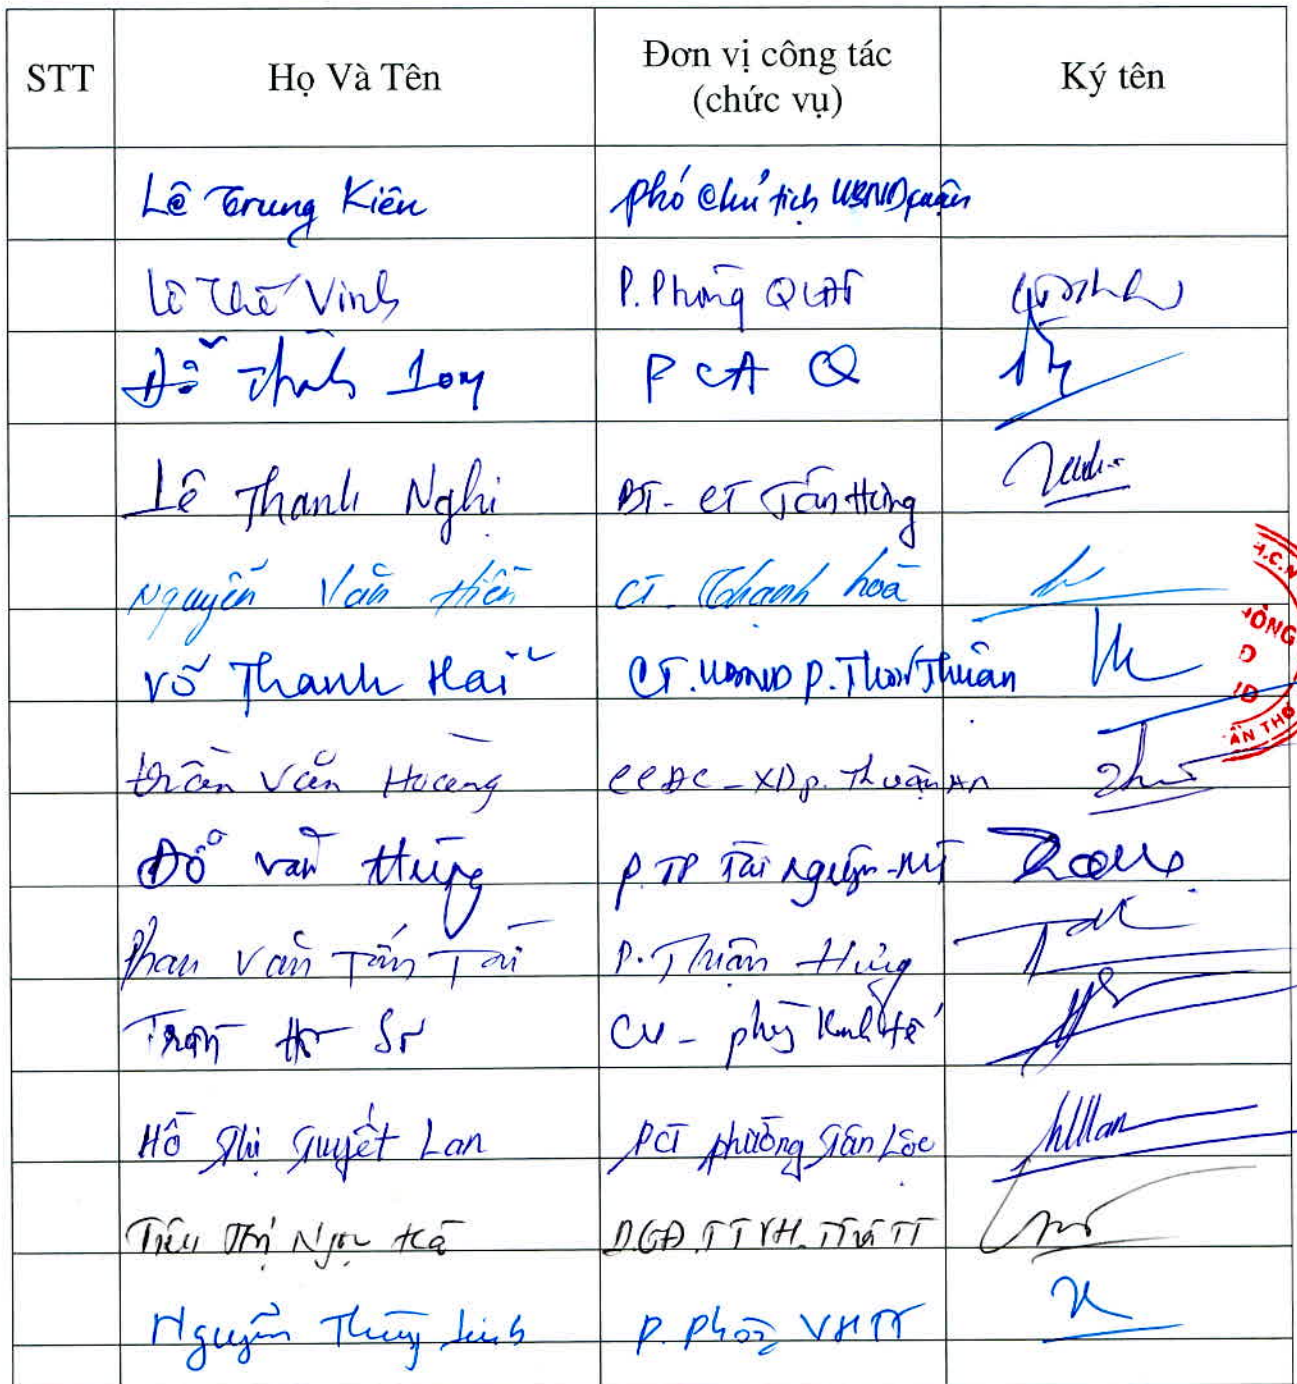 STT Họ Và Tên Đơn vị công tác (chức vụ) Ký tên
Lê Trung Kiên Phó Chủ tịch UBND quận
Lê Thế Vinh P. Phòng QLĐT
Đỗ Thành P CA Q
Lê Thanh Nghị BT - CT Tân Hưng
Nguyễn Văn Hiền CT. Thạnh hoà
Võ Thanh Hải CT. UBND P. Thới Thuận
Trần Văn Hoàng CCĐC - XD p. Thuận An
Đỗ Văn Hùng P. TP Tài nguyên - MT
Phan Văn Tấn Tài P. Thuận Hưng
Trần CV - phòng Kinh tế
Hồ Thị Tuyết Lan PCT phường Tân Lộc
Thị Ngọc Hà P.GĐ. TTVH.
Nguyễn Thùy Linh P. Phòng VHTT